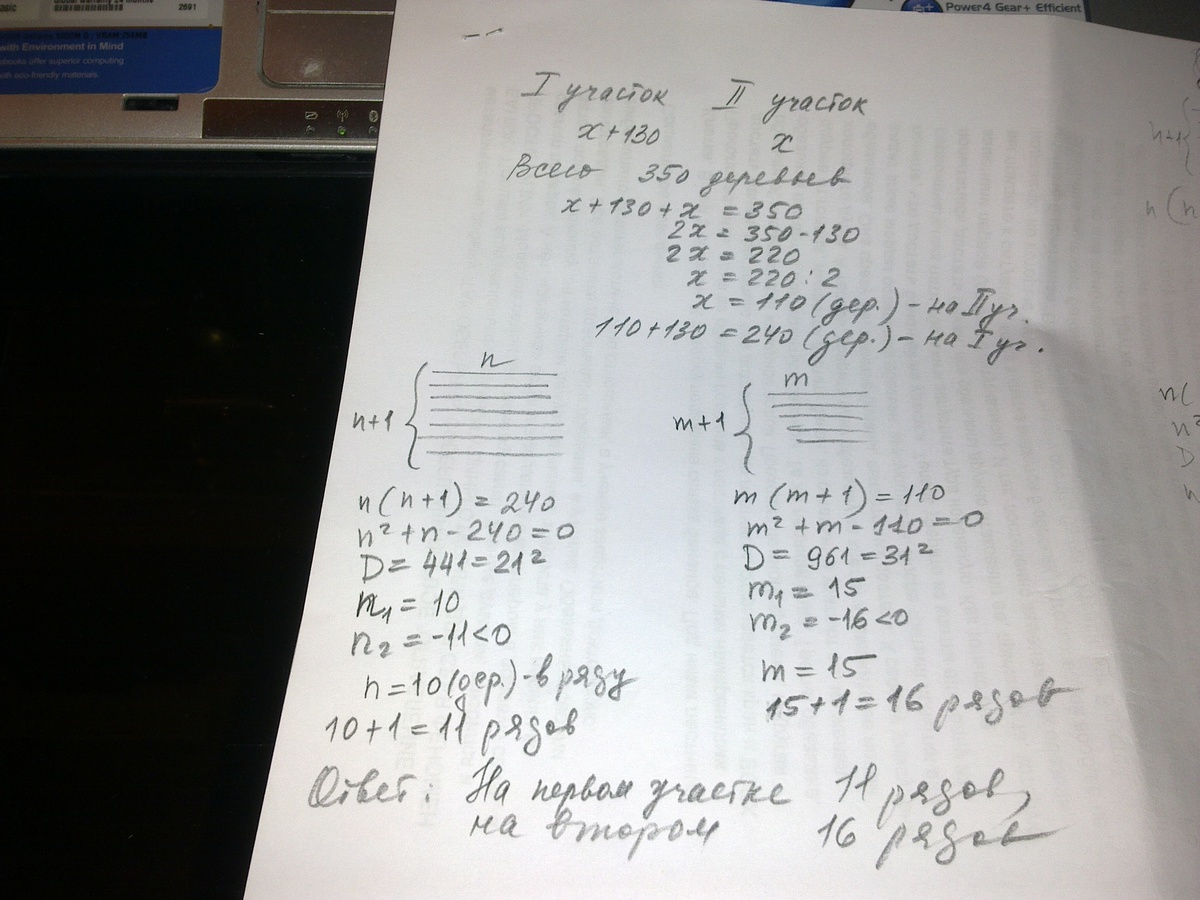 2691
Power4 Gear+ Efficient
with Environment in Mind
books offer superior computing
with eco-friendly materials.
I участок II участок
x+130 x
Всего 350 деревьев
x+130+x = 350
2x = 350-130
2x = 220
x = 220:2
x = 110 (дер.) - на II уч.
110+130 = 240 (дер.) - на I уч.
n m
n+1 m+1
n(n+1) = 240 m(m+1) = 110
n²+n-240=0 m²+m-110=0
D = 441 = 21² D = 961 = 31²
n₁ = 10 m₁ = 15
n₂ = -11<0 m₂ = -16<0
n=10(дер.)-в ряду m=15
10+1=11 рядов 15+1=16 рядов
Ответ: На первом участке 11 рядов,
на втором 16 рядов